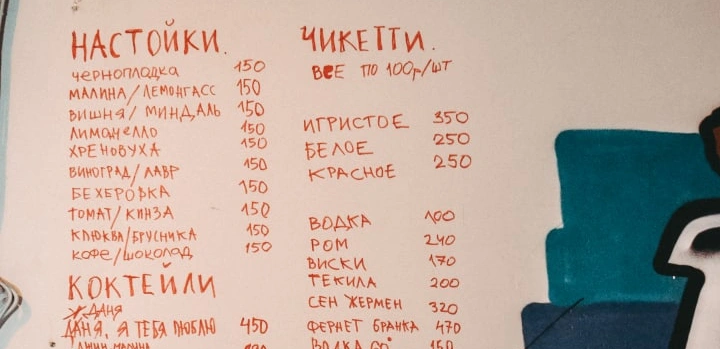 НАСТОЙКИ.
ЧЕРНОПЛОДКА 150
МАЛИНА/ЛЕМОНГАСС 150
ВИШНЯ/МИНДАЛЬ 150
ЛИМОНЧЕЛЛО 150
ХРЕНОВУХА 150
ВИНОГРАД/ЛАВР 150
БЕХЕРОВКА 150
ТОМАТ/КИНЗА 150
КЛЮКВА/БРУСНИКА 150
КОФЕ/ШОКОЛАД 150
КОКТЕЙЛИ
ДАНЯ
ДАНЯ, Я ТЕБЯ ЛЮБЛЮ 450
ЧИКЕТТИ.
ВСЕ ПО 100р/ШТ
ИГРИСТОЕ 350
БЕЛОЕ 250
КРАСНОЕ 250
ВОДКА 100
РОМ 240
ВИСКИ 170
ТЕКИЛА 200
СЕН ЖЕРМЕН 320
ФЕРНЕТ БРАНКА 470
ВОДКА 150